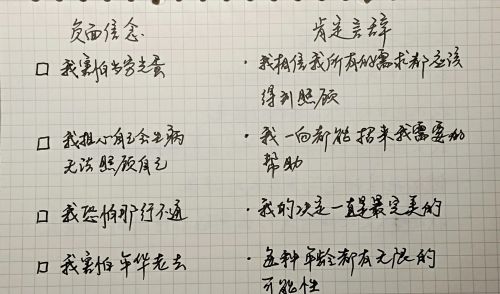 负面信念
肯定言辞
我害怕当穷光蛋
我相信我所有的需求都应该
得到照顾
我担心自己会生病
无法照顾自己
我一向都能招来我需要的
帮助
我恐怕那行不通
我的决定一直是最完美的
我害怕年华老去
每种年龄都有无限的
可能性